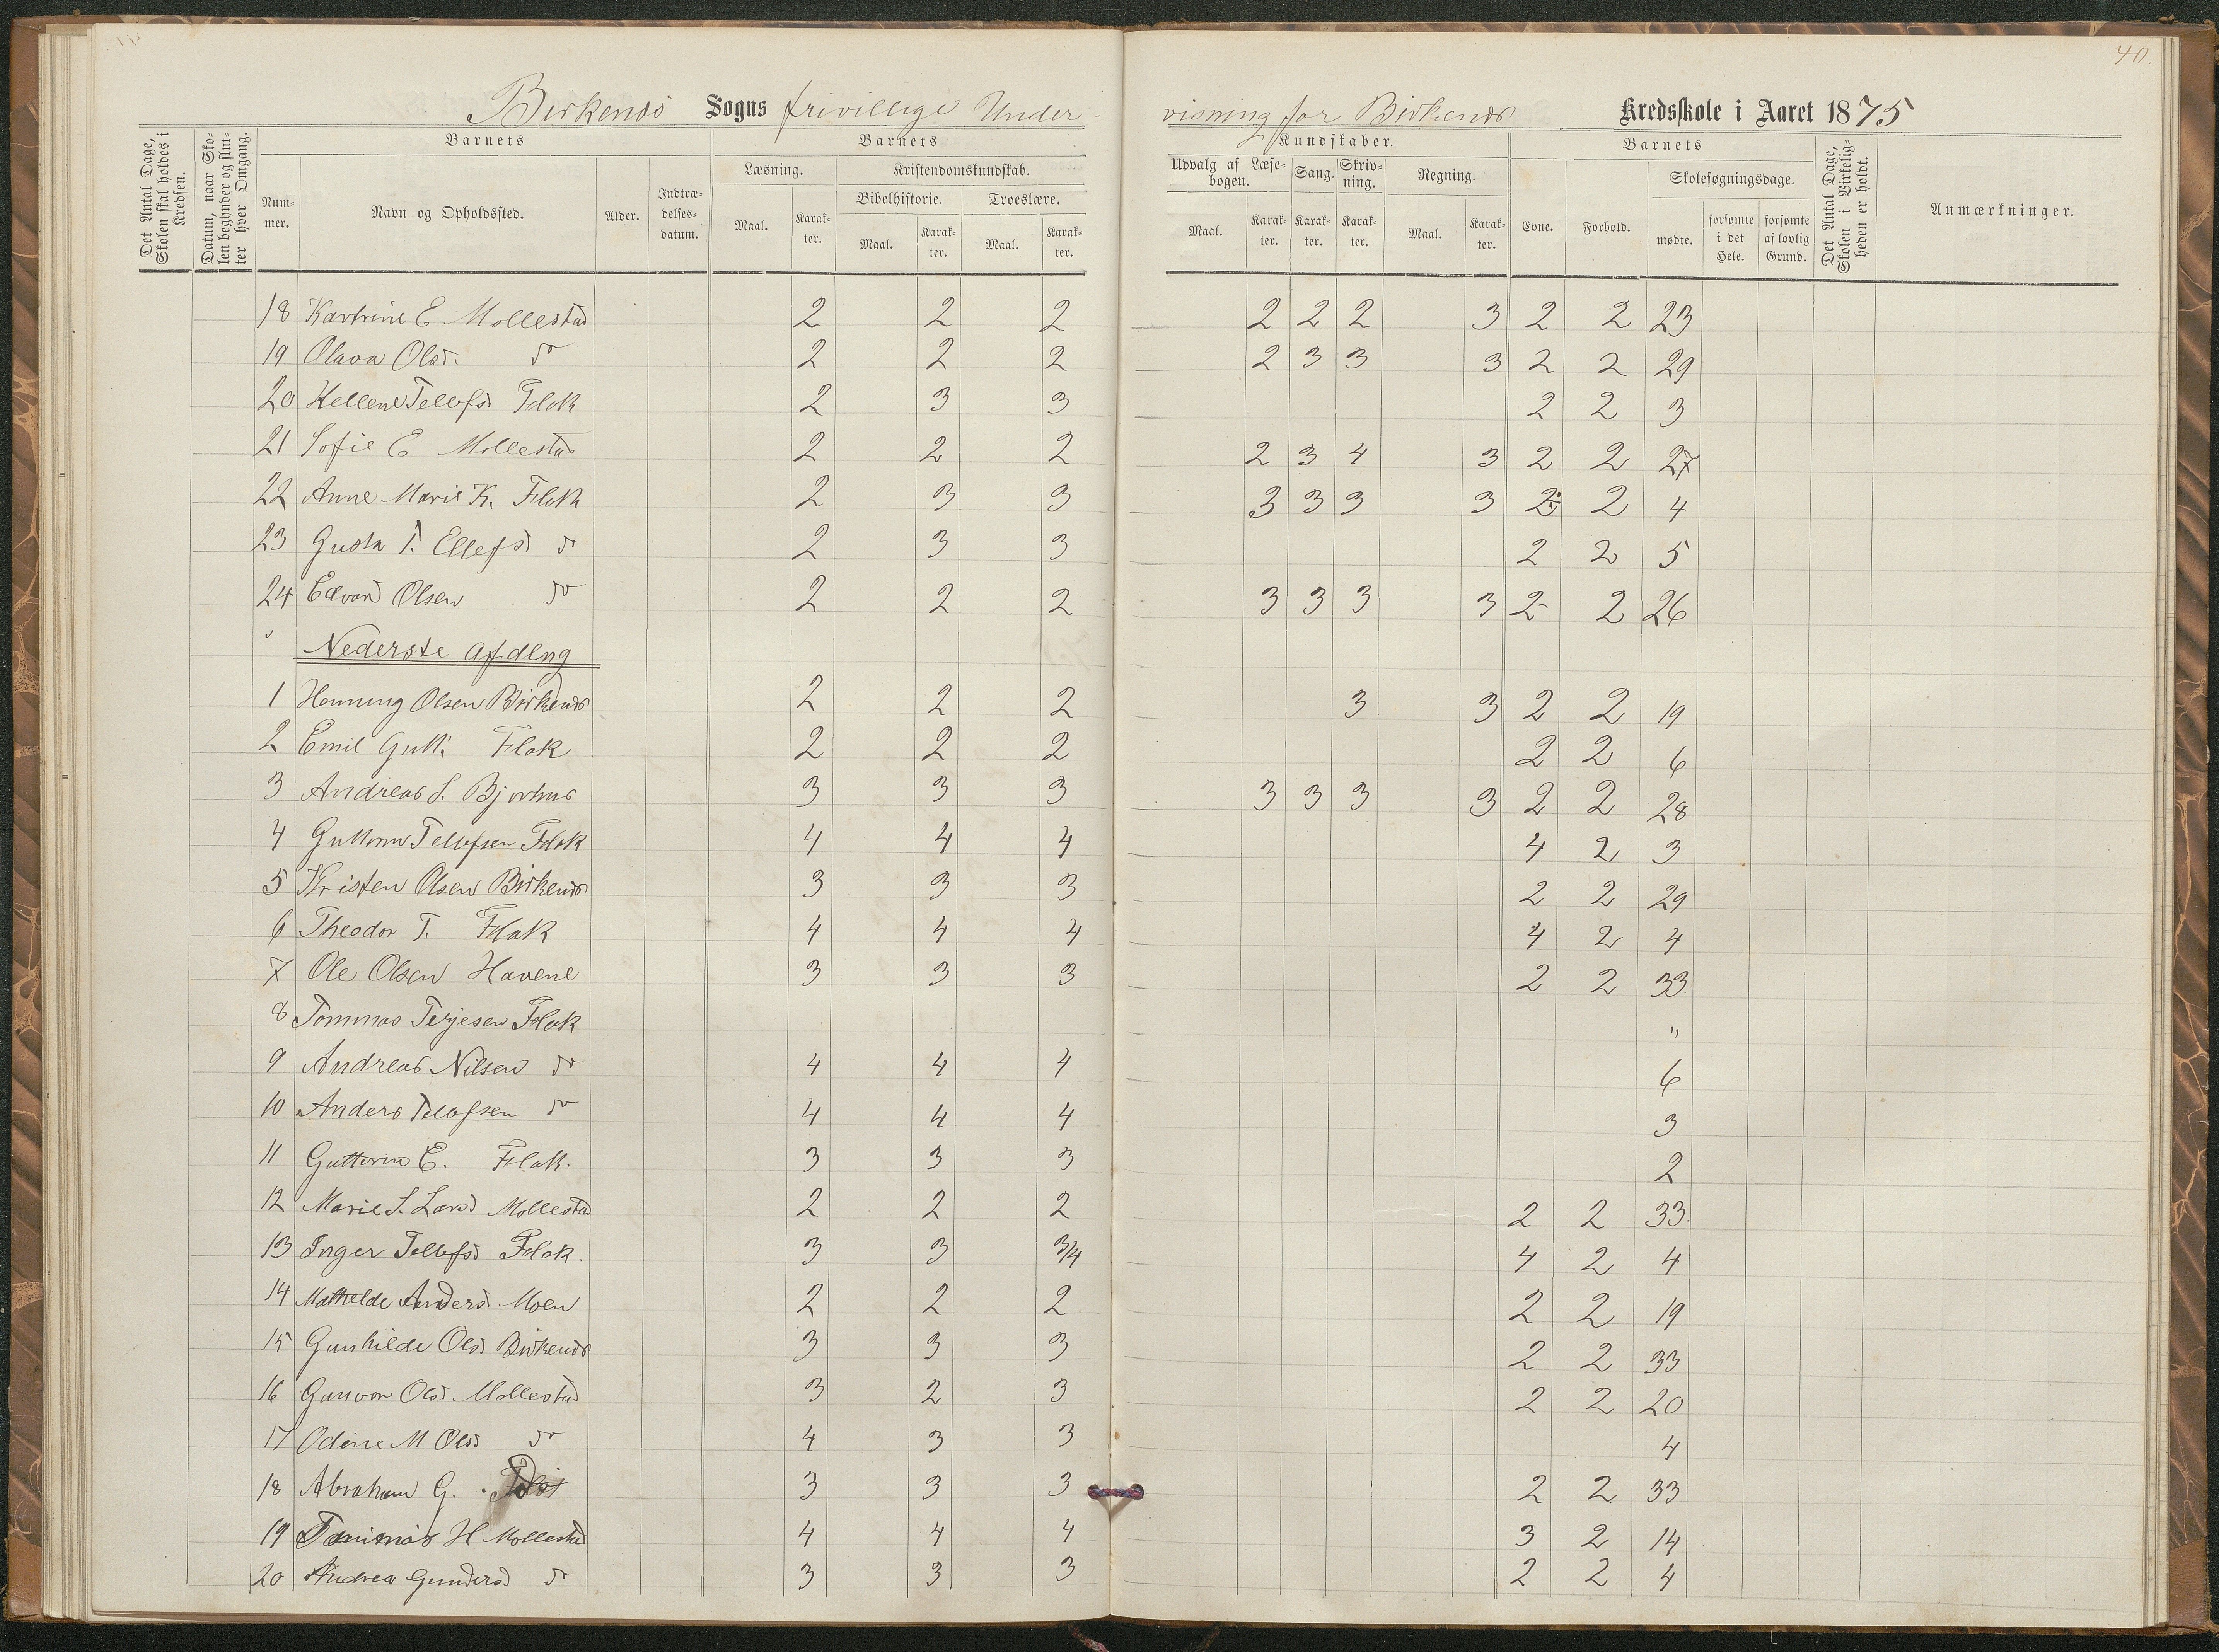 40.
Birkenæs Sogns frivillige Under-visning for Birkenæs Kredsskole i Aaret 1875
Det Antal Dage, Skolen skal holdes i Kredsen.
Datum, naar Skolen begynder og slutter hver Omgang.
Barnets
Nummer.
Navn og Opholdssted.
Alder.
Indtrædelsesdatum.
Barnets
Læsning.
Maal.
Karakter.
Kristendomskundskab.
Bibelhistorie.
Maal.
Karakter.
Troeslære.
Maal.
Karakter.
Kundskaber.
Udvalg af Læsebogen.
Maal.
Karakter.
Sang.
Karakter.
Skrivning.
Karakter.
Regning.
Maal.
Karakter.
Barnets
Evne.
Forhold.
Skolesøgningsdage.
mødte.
forsømte i det Hele.
forsømte af lovlig Grund.
Det Antal Dage, Skolen i Virkeligheden er holdt.
Anmærkninger.
18 Kartrine E Mollestad 2 2 2 2 2 2 3 2 2 23
19 Olava Olsd. do 2 2 2 2 3 3 3 2 2 29
20 Hellene Tellefsd Flak 2 3 3 2 2 3
21 Sofie E Mollestad 2 2 2 2 3 4 3 2 2 27
22 Anne Marie K. Flak 2 3 3 3 3 3 3 2 2 4
23 Gusta T. Ellefsd do 2 3 3 2 2 5
24 Edvard Olsen do 2 2 2 3 3 3 3 2- 2 26
Nederste Afdlng
1 Henning Olsen Birkenæs 2 2 2 3 3 2 2 19
2 Emil Gutt. Flak 2 2 2 2 2 6
3 Andreas S. Bjorhus 3 3 3 3 3 3 3 2 2 28
4 Guttorm Tellefsen Flak 4 4 4 4 2 3
5 Kristen Olsen Birkenæs 3 3 3 2 2 29
6 Theodor T. Flak 4 4 4 4 2 4
7 Ole Olsen Havene 3 3 3 2 2 33
8 Tommas Terjesen Flak "
9 Andreas Nilsen do 4 4 4 6
10 Anders Tellefsen do 4 4 4 3
11 Guttorm E. Flak. 3 3 3 2
12 Marie S. Larsd Mollestad 2 2 2 2 2 33.
13 Inger Tellefsd Flak. 3 3 3/4 4 2 4
14 Mathelde Andersd Moen 2 2 2 2 2 19
15 Gunhilde Olsd Birkenæs 3 3 3 2 2 33
16 Gunvor Olsd Mollestad 3 2 3 2 2 20
17 Odine M Olsd do 4 3 3 4
18 Abraham G. 3 3 3 2 2 33
19 Tommas H Mollestad 4 4 4 3 2 14
20 Andrea Gundersd do 3 3 3 2 2 4